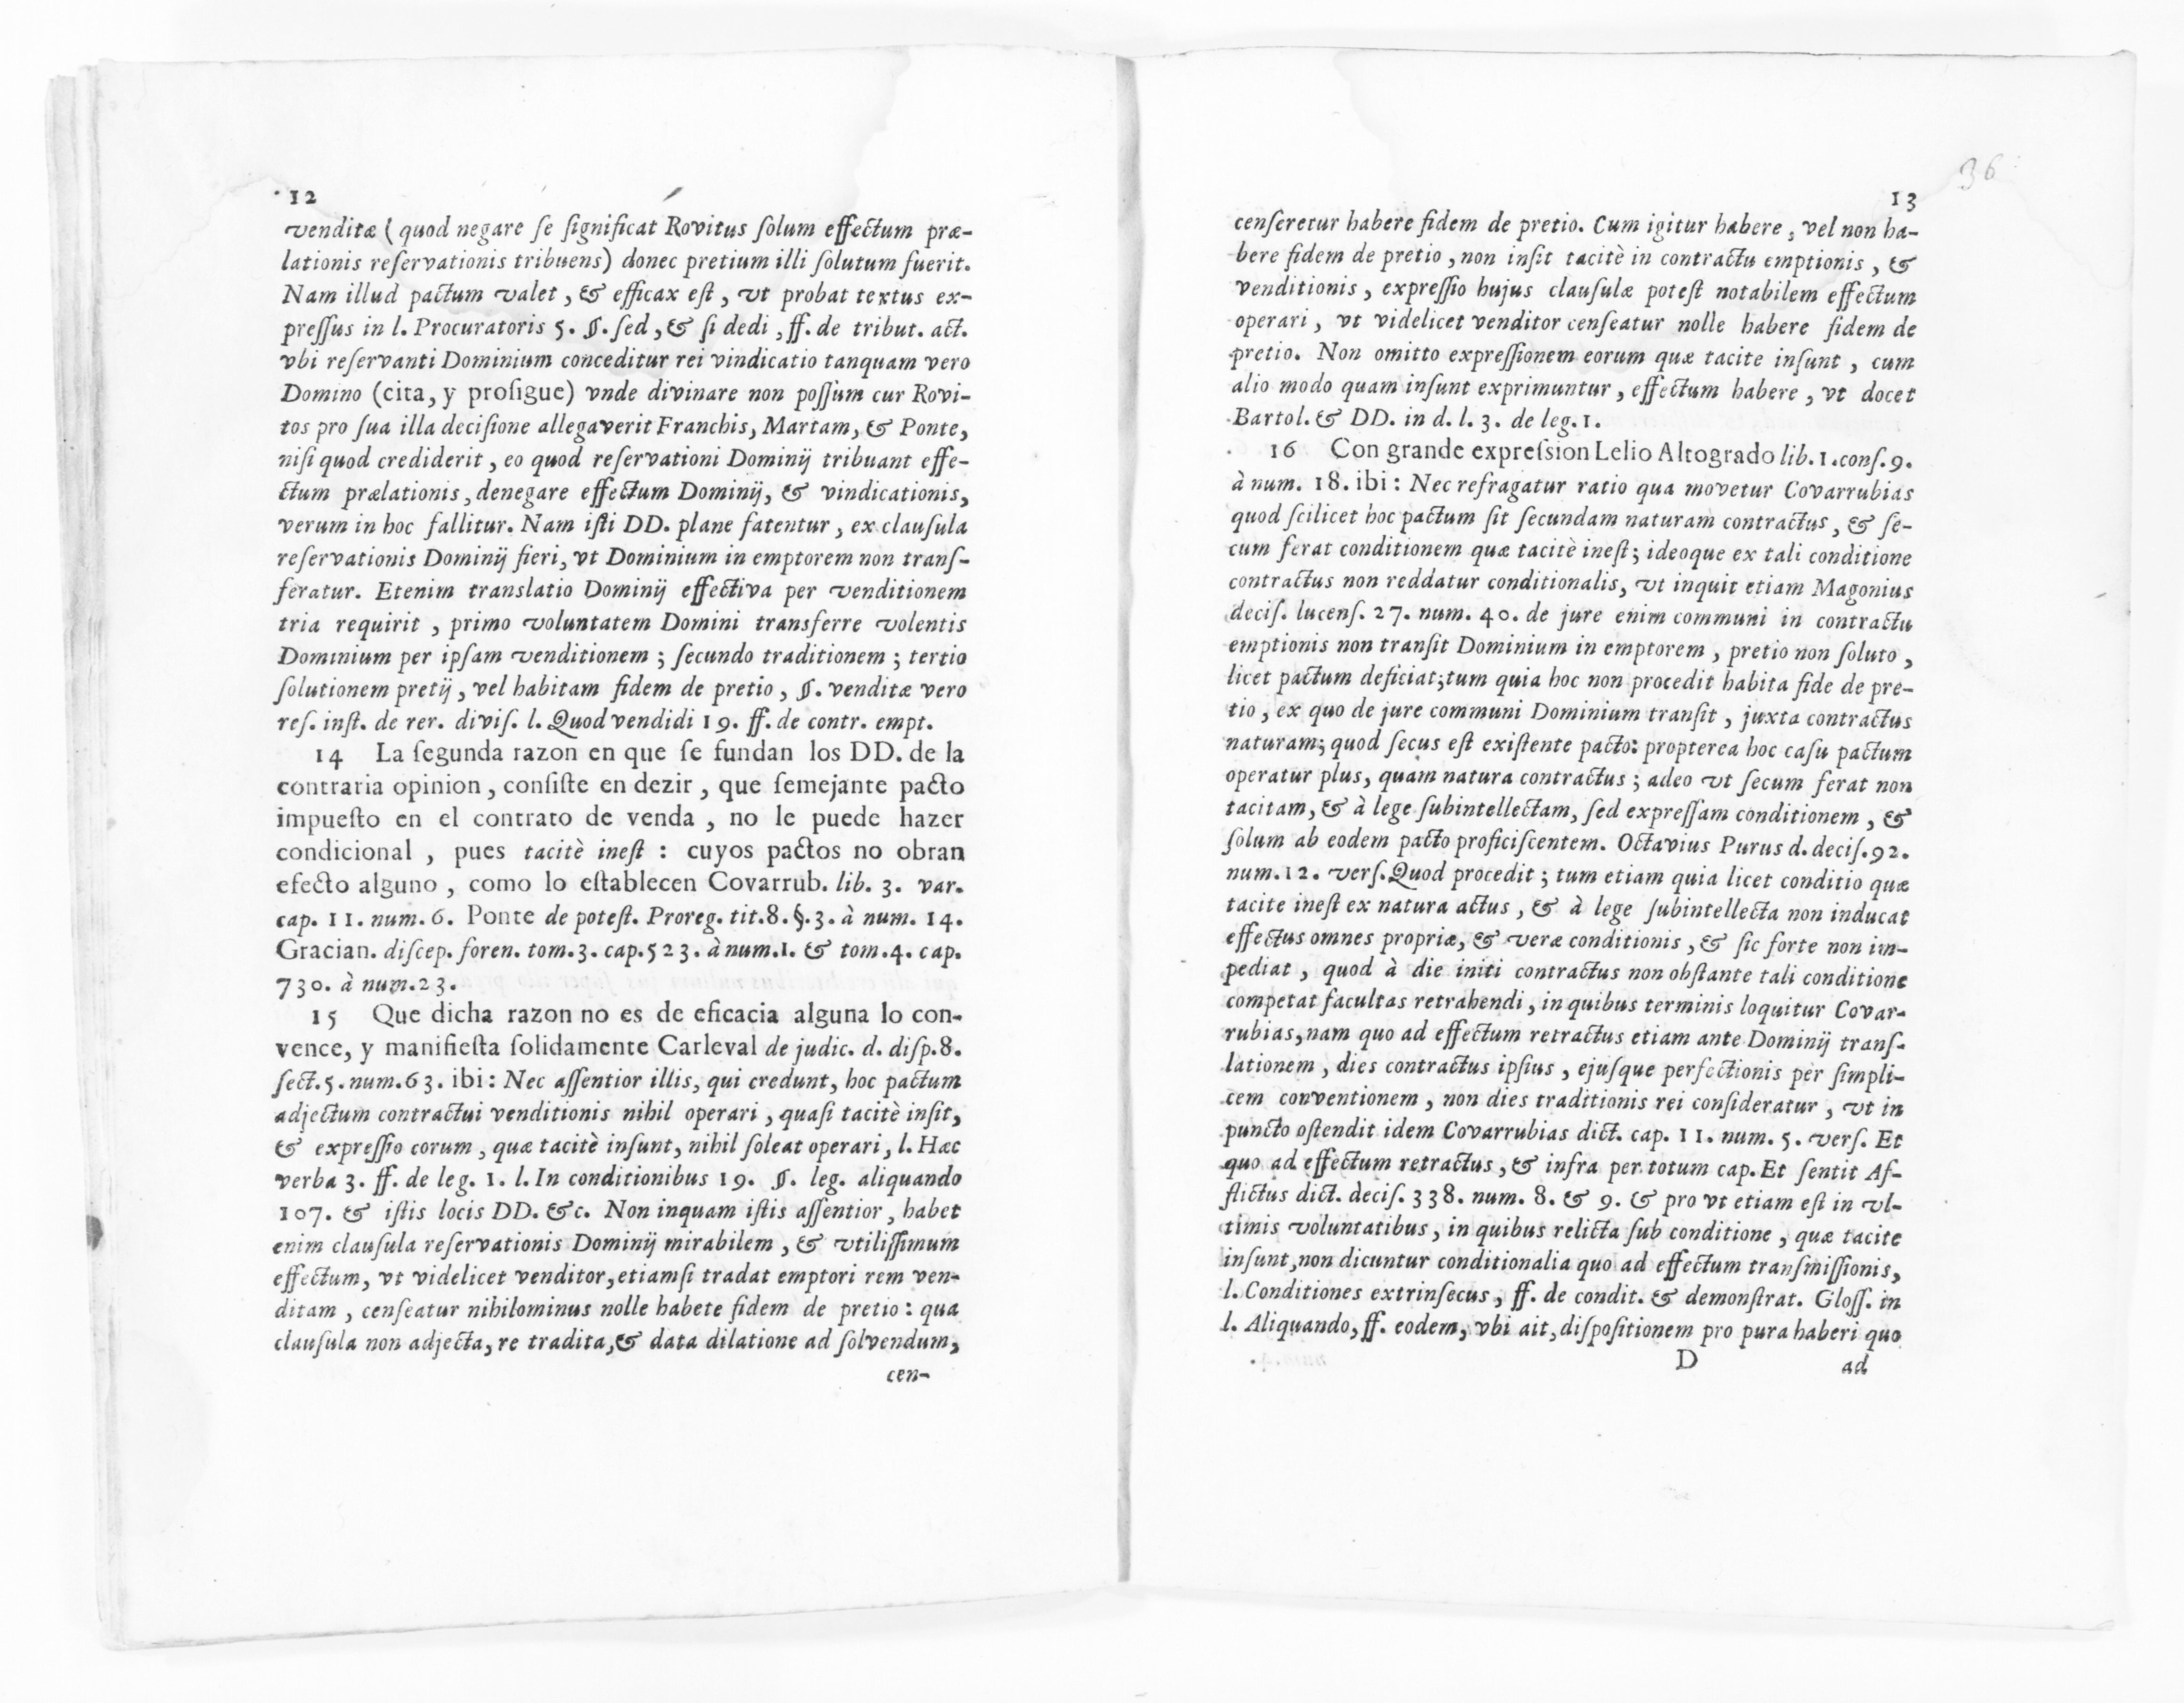 12
venditæ (quod negare ſe ſignificat Rovitus ſolum effectum præ-
lationis reſervationis tribuens) donec pretium illi ſolutum fuerit.
Nam illud pactum valet, & efficax eſt, vt probat textus ex-
preſſus in l. Procuratoris 5. §. ſed, & ſi dedi, ff. de tribut. act.
vbi reſervanti Dominium conceditur rei vindicatio tanquam vero
Domino (cita, y proſigue) vnde divinare non poſſum cur Rovi-
tos pro ſua illa deciſione allegaverit Franchis, Martam, & Ponte,
niſi quod crediderit, eo quod reſervationi Dominij tribuant effe-
ctum prælationis, denegare effectum Dominij, & vindicationis,
verum in hoc fallitur. Nam iſti DD. plane fatentur, ex clauſula
reſervationis Dominij fieri, vt Dominium in emptorem non tranſ-
feratur. Etenim translatio Dominij effectiva per venditionem
tria requirit, primo voluntatem Domini transferre volentis
Dominium per ipſam venditionem; ſecundo traditionem; tertio
ſolutionem pretij, vel habitam fidem de pretio, §. venditæ vero
reſ. inſt. de rer. diviſ. l. Quod vendidi 19. ff. de contr. empt.
14 La ſegunda razon en que ſe fundan los DD. de la
contraria opinion, conſiſte en dezir, que ſemejante pacto
impueſto en el contrato de venda, no le puede hazer
condicional, pues tacitè ineſt: cuyos pactos no obran
efecto alguno, como lo eſtablecen Covarrub. lib. 3. var.
cap. 11. num. 6. Ponte de poteſt. Proreg. tit.8. §.3. à num. 14.
Gracian. diſcep. foren. tom.3. cap.523. à num.1. & tom.4. cap.
730. à num.23.
15 Que dicha razon no es de eficacia alguna lo con-
vence, y manifieſta ſolidamente Carleval de judic. d. diſp.8.
ſect.5.num.63. ibi: Nec aſſentior illis, qui credunt, hoc pactum
adjectum contractui venditionis nihil operari, quaſi tacitè inſit,
& expreſſio eorum, quæ tacitè inſunt, nihil ſoleat operari, l. Hæc
verba 3. ff. de leg. 1. l. In conditionibus 19. §. leg. aliquando
107. & iſtis locis DD. &c. Non inquam iſtis aſſentior, habet
enim clauſula reſervationis Dominij mirabilem, & vtiliſſimum
effectum, vt videlicet venditor, etiamſi tradat emptori rem ven-
ditam, cenſeatur nihilominus nolle habete fidem de pretio: qua
clauſula non adjecta, re tradita, & data dilatione ad ſolvendum,
cen-
36
13
cenſeretur habere fidem de pretio. Cum igitur habere, vel non ha-
bere fidem de pretio, non inſit tacitè in contractu emptionis, &
venditionis, expreſſio hujus clauſulæ poteſt notabilem effectum
operari, vt videlicet venditor cenſeatur nolle habere fidem de
pretio. Non omitto expreſſionem eorum quæ tacite inſunt, cum
alio modo quam inſunt exprimuntur, effectum habere, vt docet
Bartol. & DD. in d. l. 3. de leg. 1.
16 Con grande expreſsion Lelio Altogrado lib. 1. conſ. 9.
à num. 18. ibi: Nec refragatur ratio qua movetur Covarrubias
quod ſcilicet hoc pactum ſit ſecundam naturam contractus, & ſe-
cum ferat conditionem quæ tacitè ineſt; ideoque ex tali conditione
contractus non reddatur conditionalis, vt inquit etiam Magonius
deciſ. lucenſ. 27. num. 40. de jure enim communi in contractu
emptionis non tranſit Dominium in emptorem, pretio non ſoluto,
licet pactum deficiat; tum quia hoc non procedit habita fide de pre-
tio, ex quo de jure communi Dominium tranſit, juxta contractus
naturam; quod ſecus eſt exiſtente pacto: propterea hoc caſu pactum
operatur plus, quam natura contractus; adeo vt ſecum ferat non
tacitam, & à lege ſubintellectam, ſed expreſſam conditionem, &
ſolum ab eodem pacto proficiſcentem. Octavius Purus d. deciſ. 92.
num. 12. verſ. Quod procedit; tum etiam quia licet conditio quæ
tacite ineſt ex natura actus, & à lege ſubintellecta non inducat
effectus omnes propriæ, & veræ conditionis, & ſic forte non im-
pediat, quod à die initi contractus non obſtante tali conditione
competat facultas retrahendi, in quibus terminis loquitur Covar-
rubias, nam quo ad effectum retractus etiam ante Dominij tranſ-
lationem, dies contractus ipſius, ejuſque perfectionis per ſimpli-
cem conventionem, non dies traditionis rei conſideratur, vt in
puncto oſtendit idem Covarrubias dict. cap. 11. num. 5. verſ. Et
quo ad effectum retractus, & infra per totum cap. Et ſentit Af-
flictus dict. deciſ. 338. num. 8. & 9. & pro vt etiam eſt in vl-
timis voluntatibus, in quibus relicta ſub conditione, quæ tacite
inſunt, non dicuntur conditionalia quo ad effectum tranſmiſſionis,
l. Conditiones extrinſecus, ff. de condit. & demonſtrat. Gloſſ. in
l. Aliquando, ff. eodem, vbi ait, diſpoſitionem pro pura haberi quo
D ad